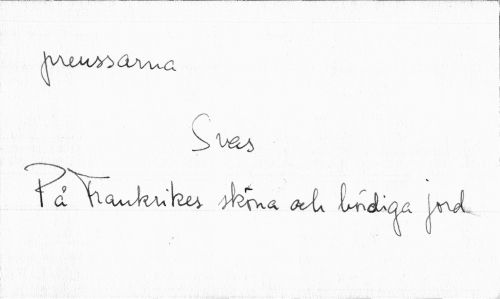 preussarna
Svas
På Frankrikes sköna och bördiga jord